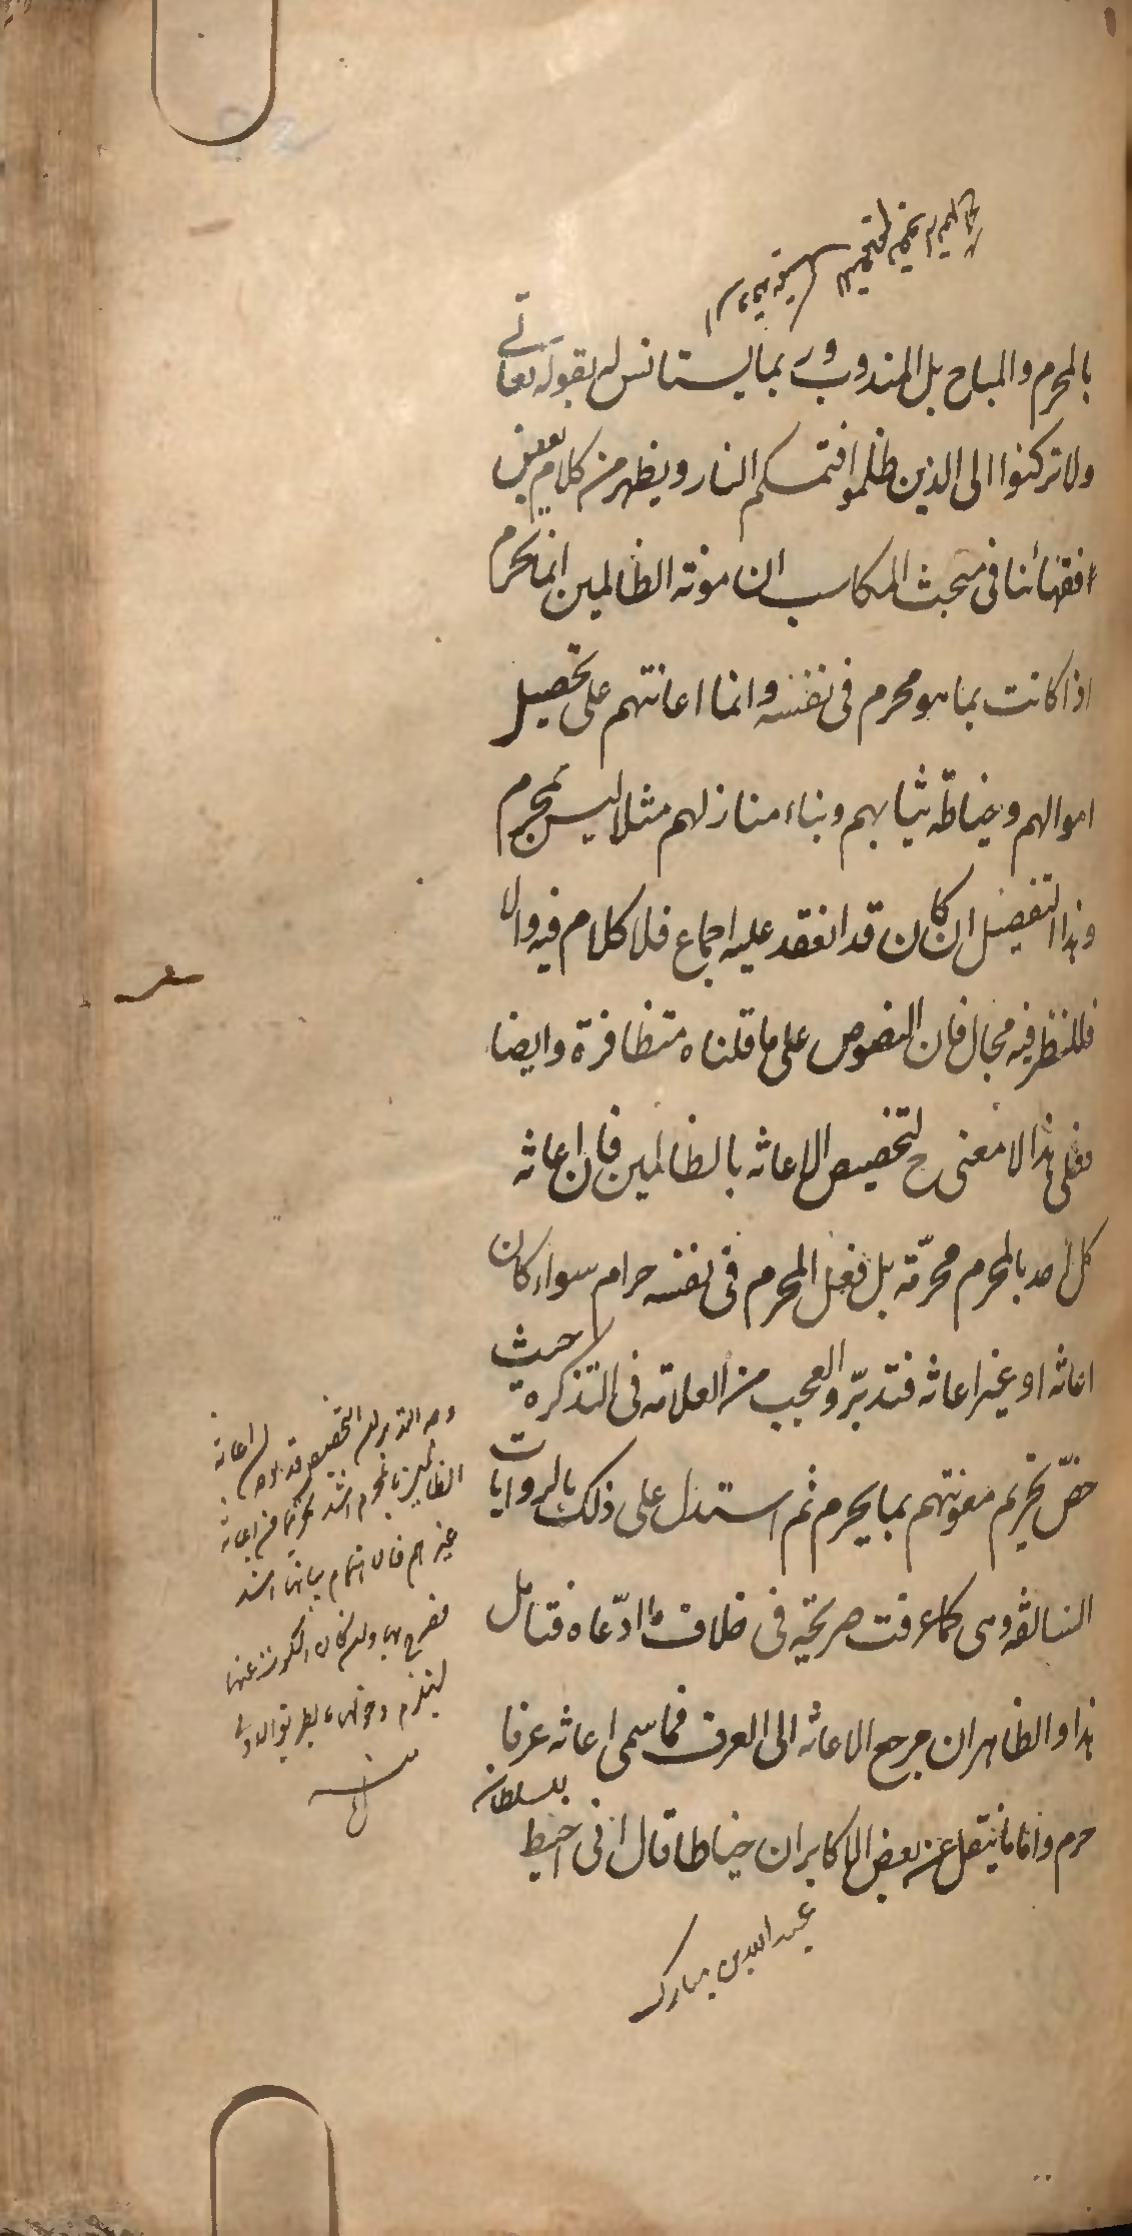 بالمحرم والمباح بل المندوب وربما يستانس له بقوله تعالى
ولا تركنوا الى الذين ظلموا فتمسكم النار ويظهر من كلام بعض
فقهائنا في مبحث المكاسب ان معونة الظالمين انما تحرم
اذا كانت بما هو محرم في نفسه واما اعانتهم على تحصيل
اموالهم وخياطة ثيابهم وبناء منازلهم مثلا ليس بمحرم
وهذا التفصيل ان كان قد انعقد عليه اجماع فلا كلام فيه والا
فللنظر فيه مجال فان النصوص على ما قلناه متظافرة وايضا
فعلى هذا لا معنى ح لتخصيص الاعانة بالظالمين فان اعانة
كل احد بالمحرم محرّمة بل فعل المحرم في نفسه حرام سواء كان
اعانة او غير اعانة فتدبّر والعجب من العلامة في التذكرة حيث
خصّ تحريم معونتهم بما يحرم ثم استدل على ذلك بالروايات
السالفة وهي كما عرفت صريحة في خلاف ما ادّعاه فتامل
هذا والظاهر ان مرجع الاعانة الى العرف فما سمى اعانة عرفا
حرم واما ما ينقل عن بعض الاكابر ان خياطا قال له اني اخيط
للسلطان
عبد الله بن مبارك
وجه التدبر ان التخصيص قد يوجه بان اعانة
الظالمين بالمحرم اشد تحريما من اعانة
غيرهم فالاهتمام ببيانها اشد